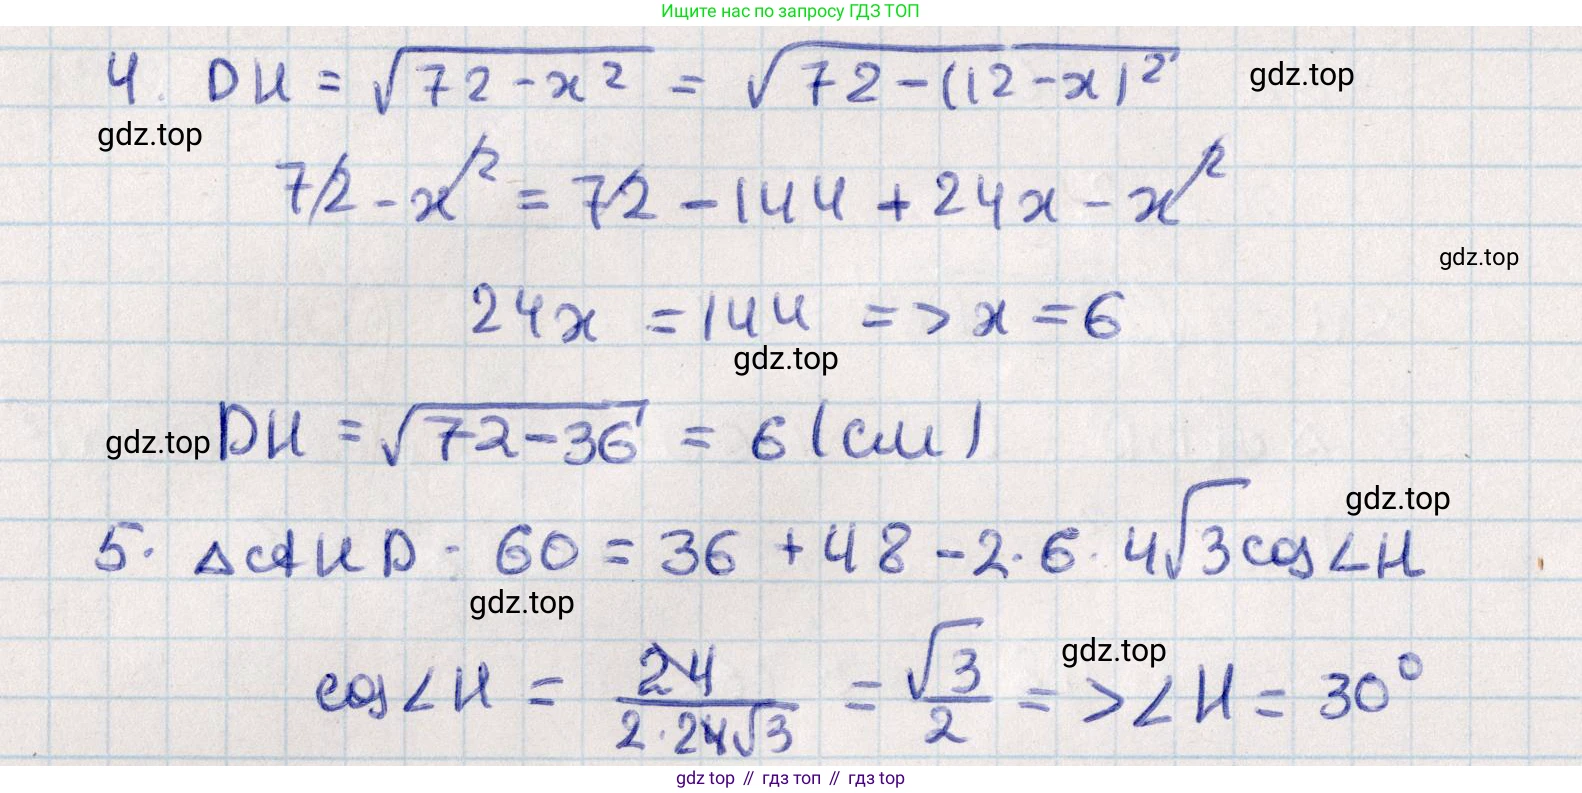 Ищите нас по запросу ГДЗ ТОП
4. DH = √(72 - x²) = √(72 - (12 - x)²)
gdz.top
gdz.top
72 - x² = 72 - 144 + 24x - x²
gdz.top
24x = 144 => x = 6
gdz.top
gdz.top
DH = √(72 - 36) = 6 (см)
gdz.top
5. △AHD · 60 = 36 + 48 - 2 · 6 · 4√3 cos∠H
gdz.top
gdz.top
cos∠H = 24 / (2 · 24√3) = √3 / 2 => ∠H = 30°
gdz top // гдз топ // гдз top